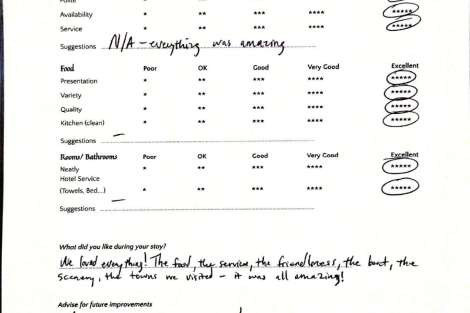 Polite
Availability * ** *** **** *****
Service * ** *** **** *****
Suggestions N/A - everything was amazing
Food Poor OK Good Very Good Excellent
Presentation * ** *** **** *****
Variety * ** *** **** *****
Quality * ** *** **** *****
Kitchen (clean) * ** *** **** *****
Suggestions —
Rooms/ Bathrooms Poor OK Good Very Good Excellent
Neatly * ** *** **** *****
Hotel Service
(Towels, Bed...) * ** *** **** *****
Suggestions —
What did you like during your stay?
We loved everything! The food, the service, the friendliness, the boat, the
scenery, the towns we visited - it was all amazing!
Advise for future improvements